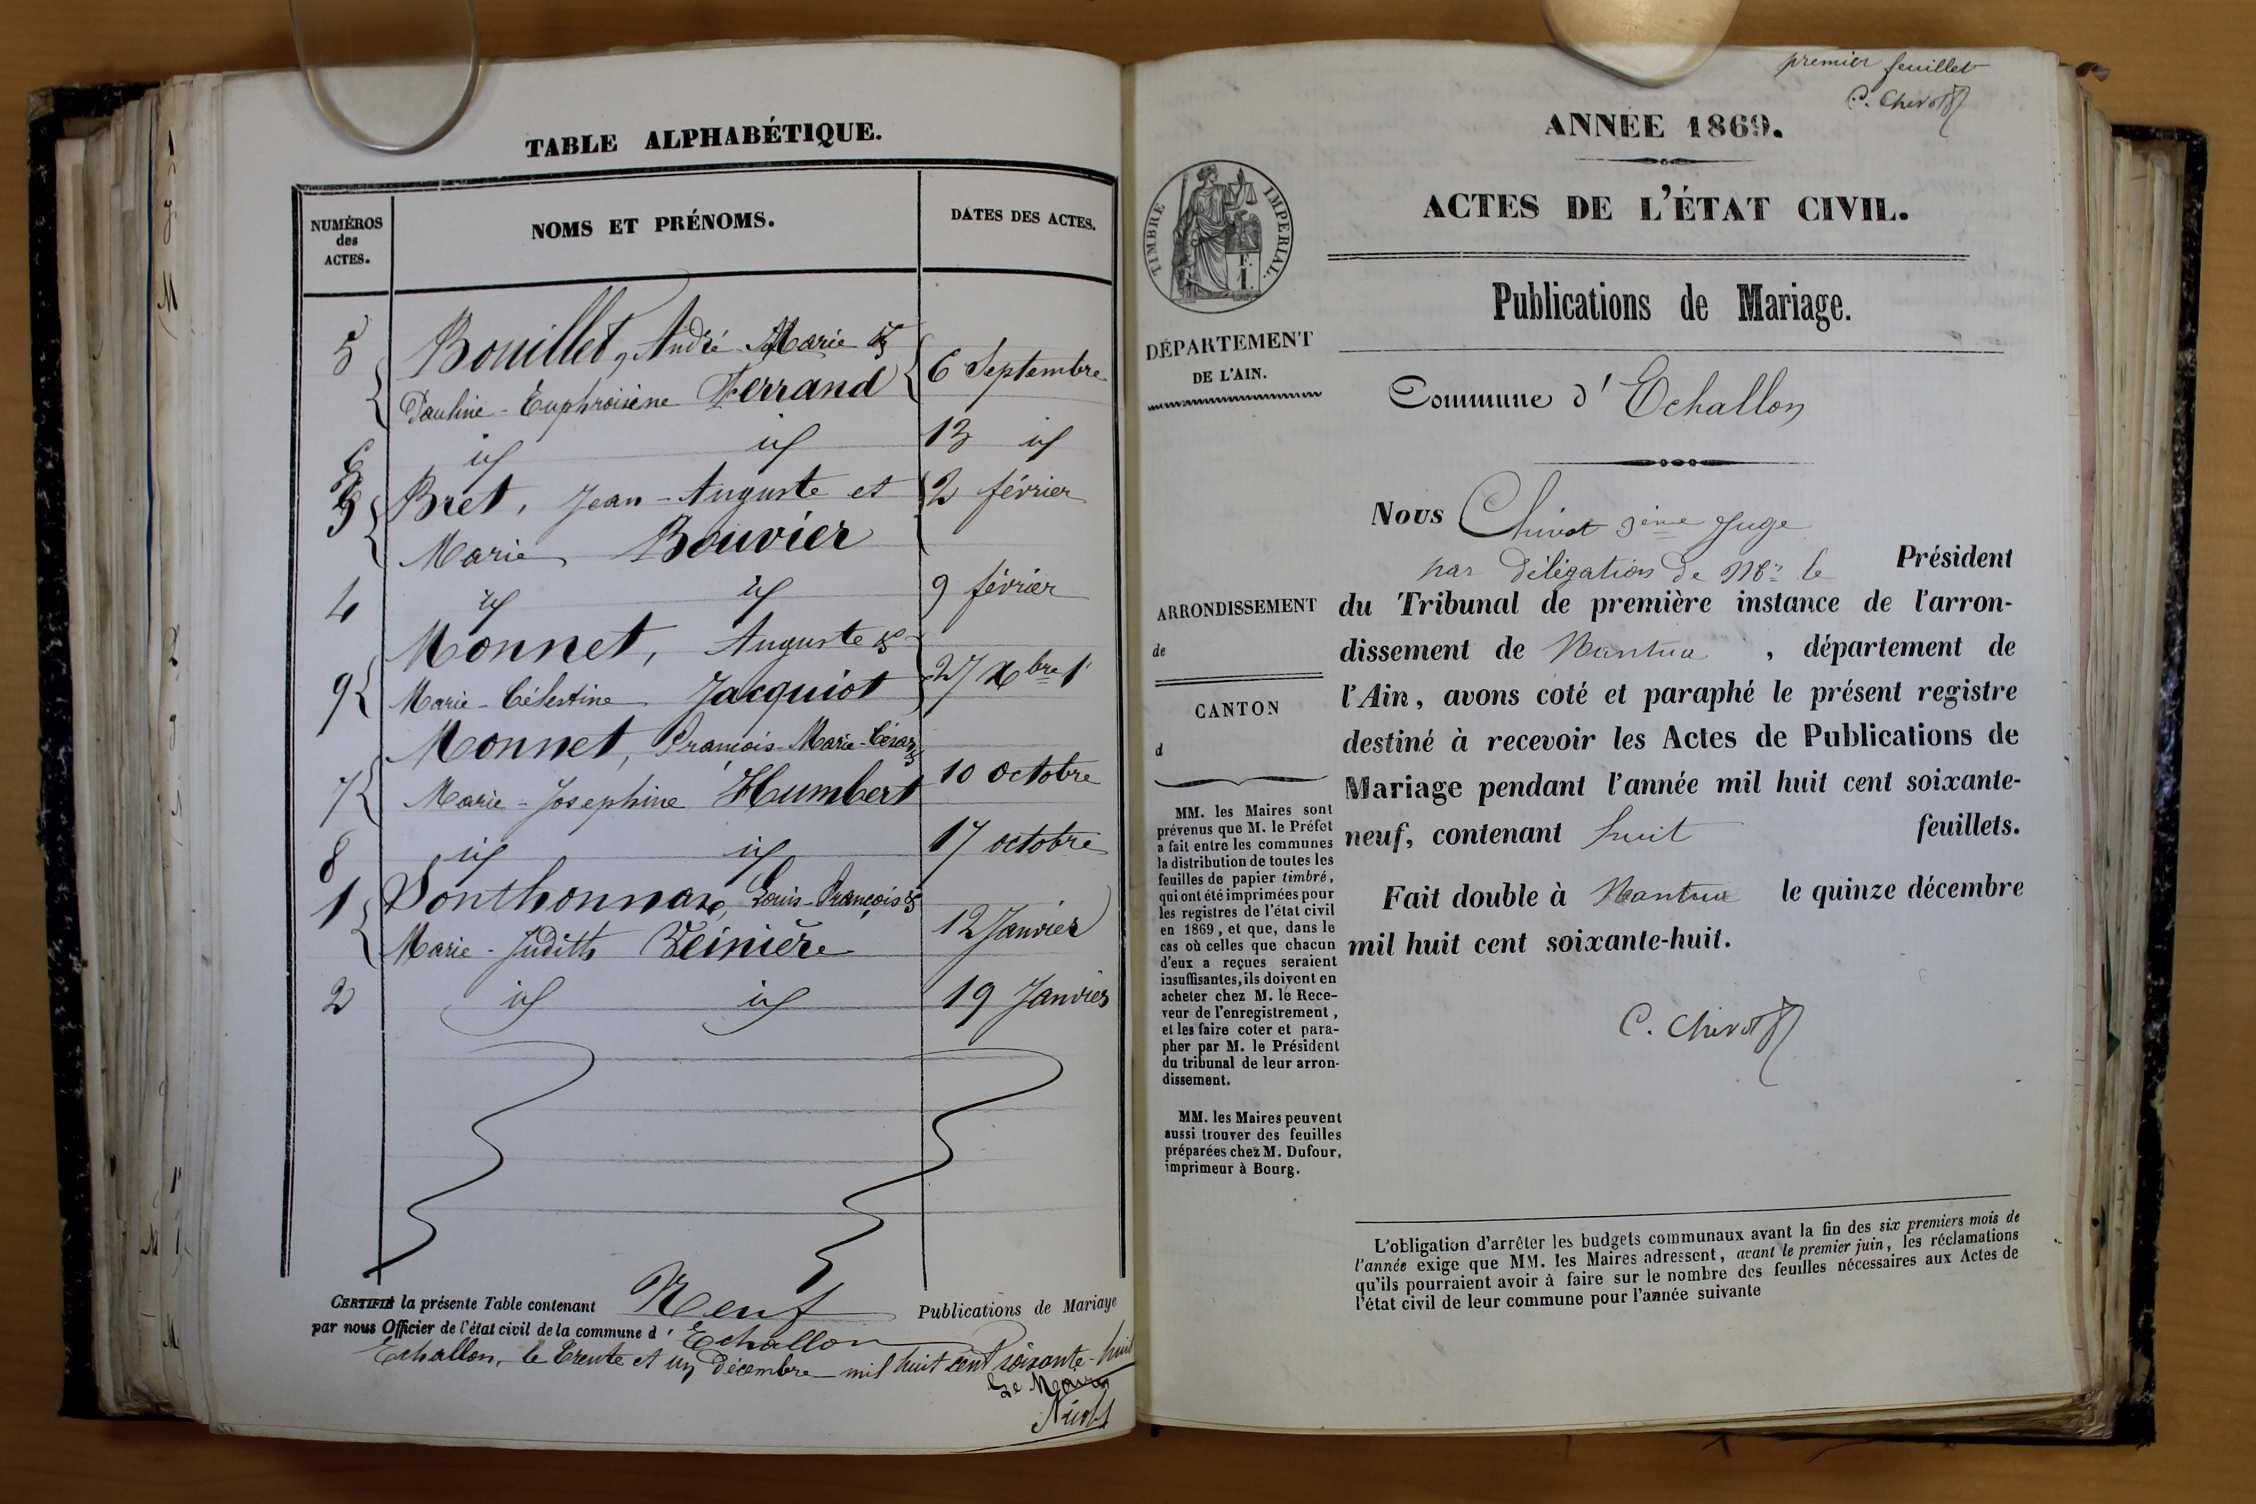 TABLE ALPHABÉTIQUE.
NUMÉROS
des
ACTES.
NOMS ET PRÉNOMS.
DATES DES ACTES.
5 Bouillet, André Marie &
Pauline-Euphroisine Ferrand 6 Septembre
6 id id 13 id
3 Bret, Jean-Auguste et 2 février
Marie Bouvier
4 id id 9 février
Monnet, Auguste &
9 Marie-Célestine Jacquiot 27 Xbre
Monnet, François-Marie-César &
7 Marie-Josephine Humbert 10 octobre
8 id id 17 octobre
1 Ponthonnax, Louis-François &
Marie-Judith Reinière 12 Janvier
2 id id 19 Janvier
CERTIFIÉ la présente Table contenant Neuf Publications de Mariage
par nous Officier de l'état civil de la commune d'Echallon
Echallon, le trente et un décembre mil huit cent soixante-huit
Le Maire
premier feuillet
C. Chivot
ANNÉE 1869.
ACTES DE L'ÉTAT CIVIL.
TIMBRE IMPERIAL.
F.
1.
Publications de Mariage.
DÉPARTEMENT
DE L'AIN.
Commune d'Echallon
Nous Chivot 3ème Juge
par délégation de Mr le Président
du Tribunal de première instance de l'arron-
dissement de Nantua, département de
l'Ain, avons coté et paraphé le présent registre
destiné à recevoir les Actes de Publications de
Mariage pendant l'année mil huit cent soixante-
neuf, contenant huit feuillets.
Fait double à Nantua le quinze décembre
mil huit cent soixante-huit.
C. Chivot
ARRONDISSEMENT
de
CANTON
d
MM. les Maires sont
prévenus que M. le Préfet
a fait entre les communes
la distribution de toutes les
feuilles de papier timbré,
qui ont été imprimées pour
les registres de l'état civil
en 1869, et que, dans le
cas où celles que chacun
d'eux a reçues seraient
insuffisantes, ils doivent en
acheter chez M. le Rece-
veur de l'enregistrement,
et les faire coter et para-
pher par M. le Président
du tribunal de leur arron-
dissement.
MM. les Maires peuvent
aussi trouver des feuilles
préparées chez M. Dufour,
imprimeur à Bourg.
L'obligation d'arrêter les budgets communaux avant la fin des six premiers mois de
l'année exige que MM. les Maires adressent, avant le premier juin, les réclamations
qu'ils pourraient avoir à faire sur le nombre des feuilles nécessaires aux Actes de
l'état civil de leur commune pour l'année suivante